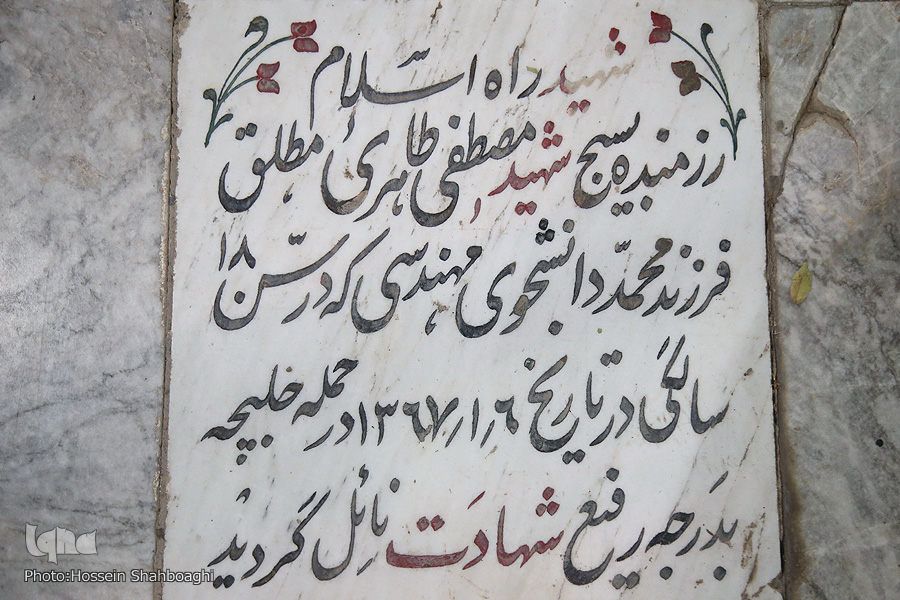 شهید راه اسلام
رزمنده بسیج شهید مصطفی طاهری مطلق
فرزند محمّد دانشجوی مهندسی که در سنّ ۱۸
سالگی در تاریخ ۱۳۶۷٫۱٫۶ در حمله حلبچه
بدرجه رفیع شهادت نائل گردید
iqna
Photo:Hossein Shahboaghi